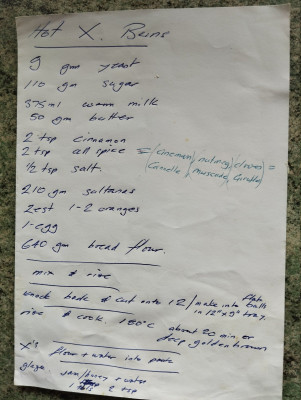 Hot X. Buns
9 gm yeast
110 gm sugar
375ml warm milk
50 gm butter
2 tsp cinnamon
2 tsp all spice = (cinemon, nutmeg, cloves) =
Canelle, Muscade, Girofle
1/2 tsp salt.
210 gm sultanas
Zest 1-2 oranges
1 egg
640 gm bread flour.
mix & rise
knock back & cut into 12 / make into flat balls
in 12"x9" tray.
rise & cook. 180°C about 20 min or
deep golden brown
X's flour + water into paste
glaze jam/honey + water
1 tbls 2 tsp